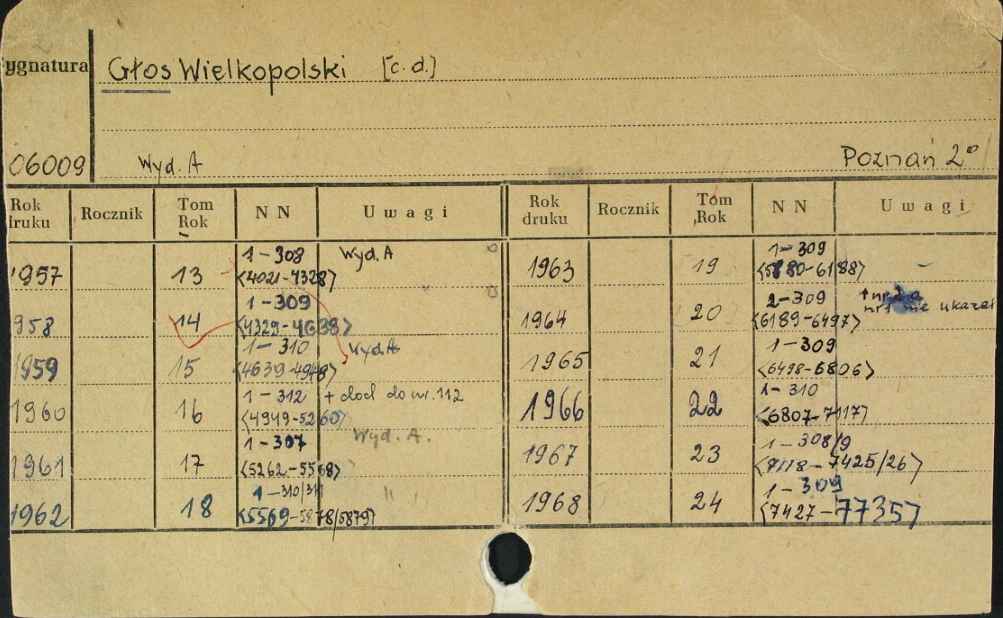 ygnatura Głos Wielkopolski [c.d.]
06009 Wyd. A Poznań 2°
Rok druku Rocznik Tom Rok NN Uwagi Rok druku Rocznik Tom Rok NN Uwagi
1957 13 1-308 <4021-4328> Wyd. A
958 14 1-309 <4329-4638>
1959 15 1-310 <4639-4948> Wyd. A
1960 16 1-312 <4949-5260> + dod do nr. 112
1961 17 1-307 <5262-5568> Wyd. A.
1962 18 1-310/311 <5569-5878/5879> "
1963 19 1-309 <5880-6188> -
1964 20 2-309 <6189-6497> nr 1 nie ukazał
1965 21 1-309 <6498-6806>
1966 22 1-310 <6807-7117>
1967 23 1-308/9 <7118-7425/26>
1968 24 1-309 <7427-7735>